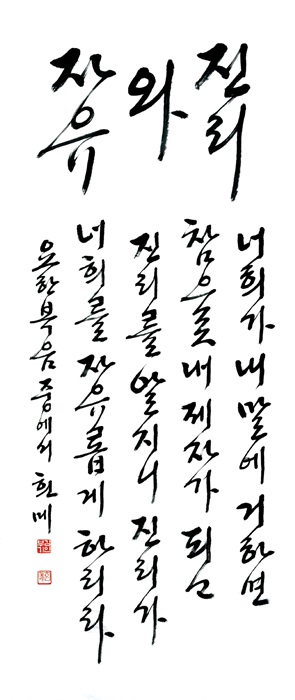 진리와 자유
너희가 내 말에 거하면
참으로 내 제자가 되고
진리를 알지니 진리가
너희를 자유롭게 하리라
요한복음 중에서 한메